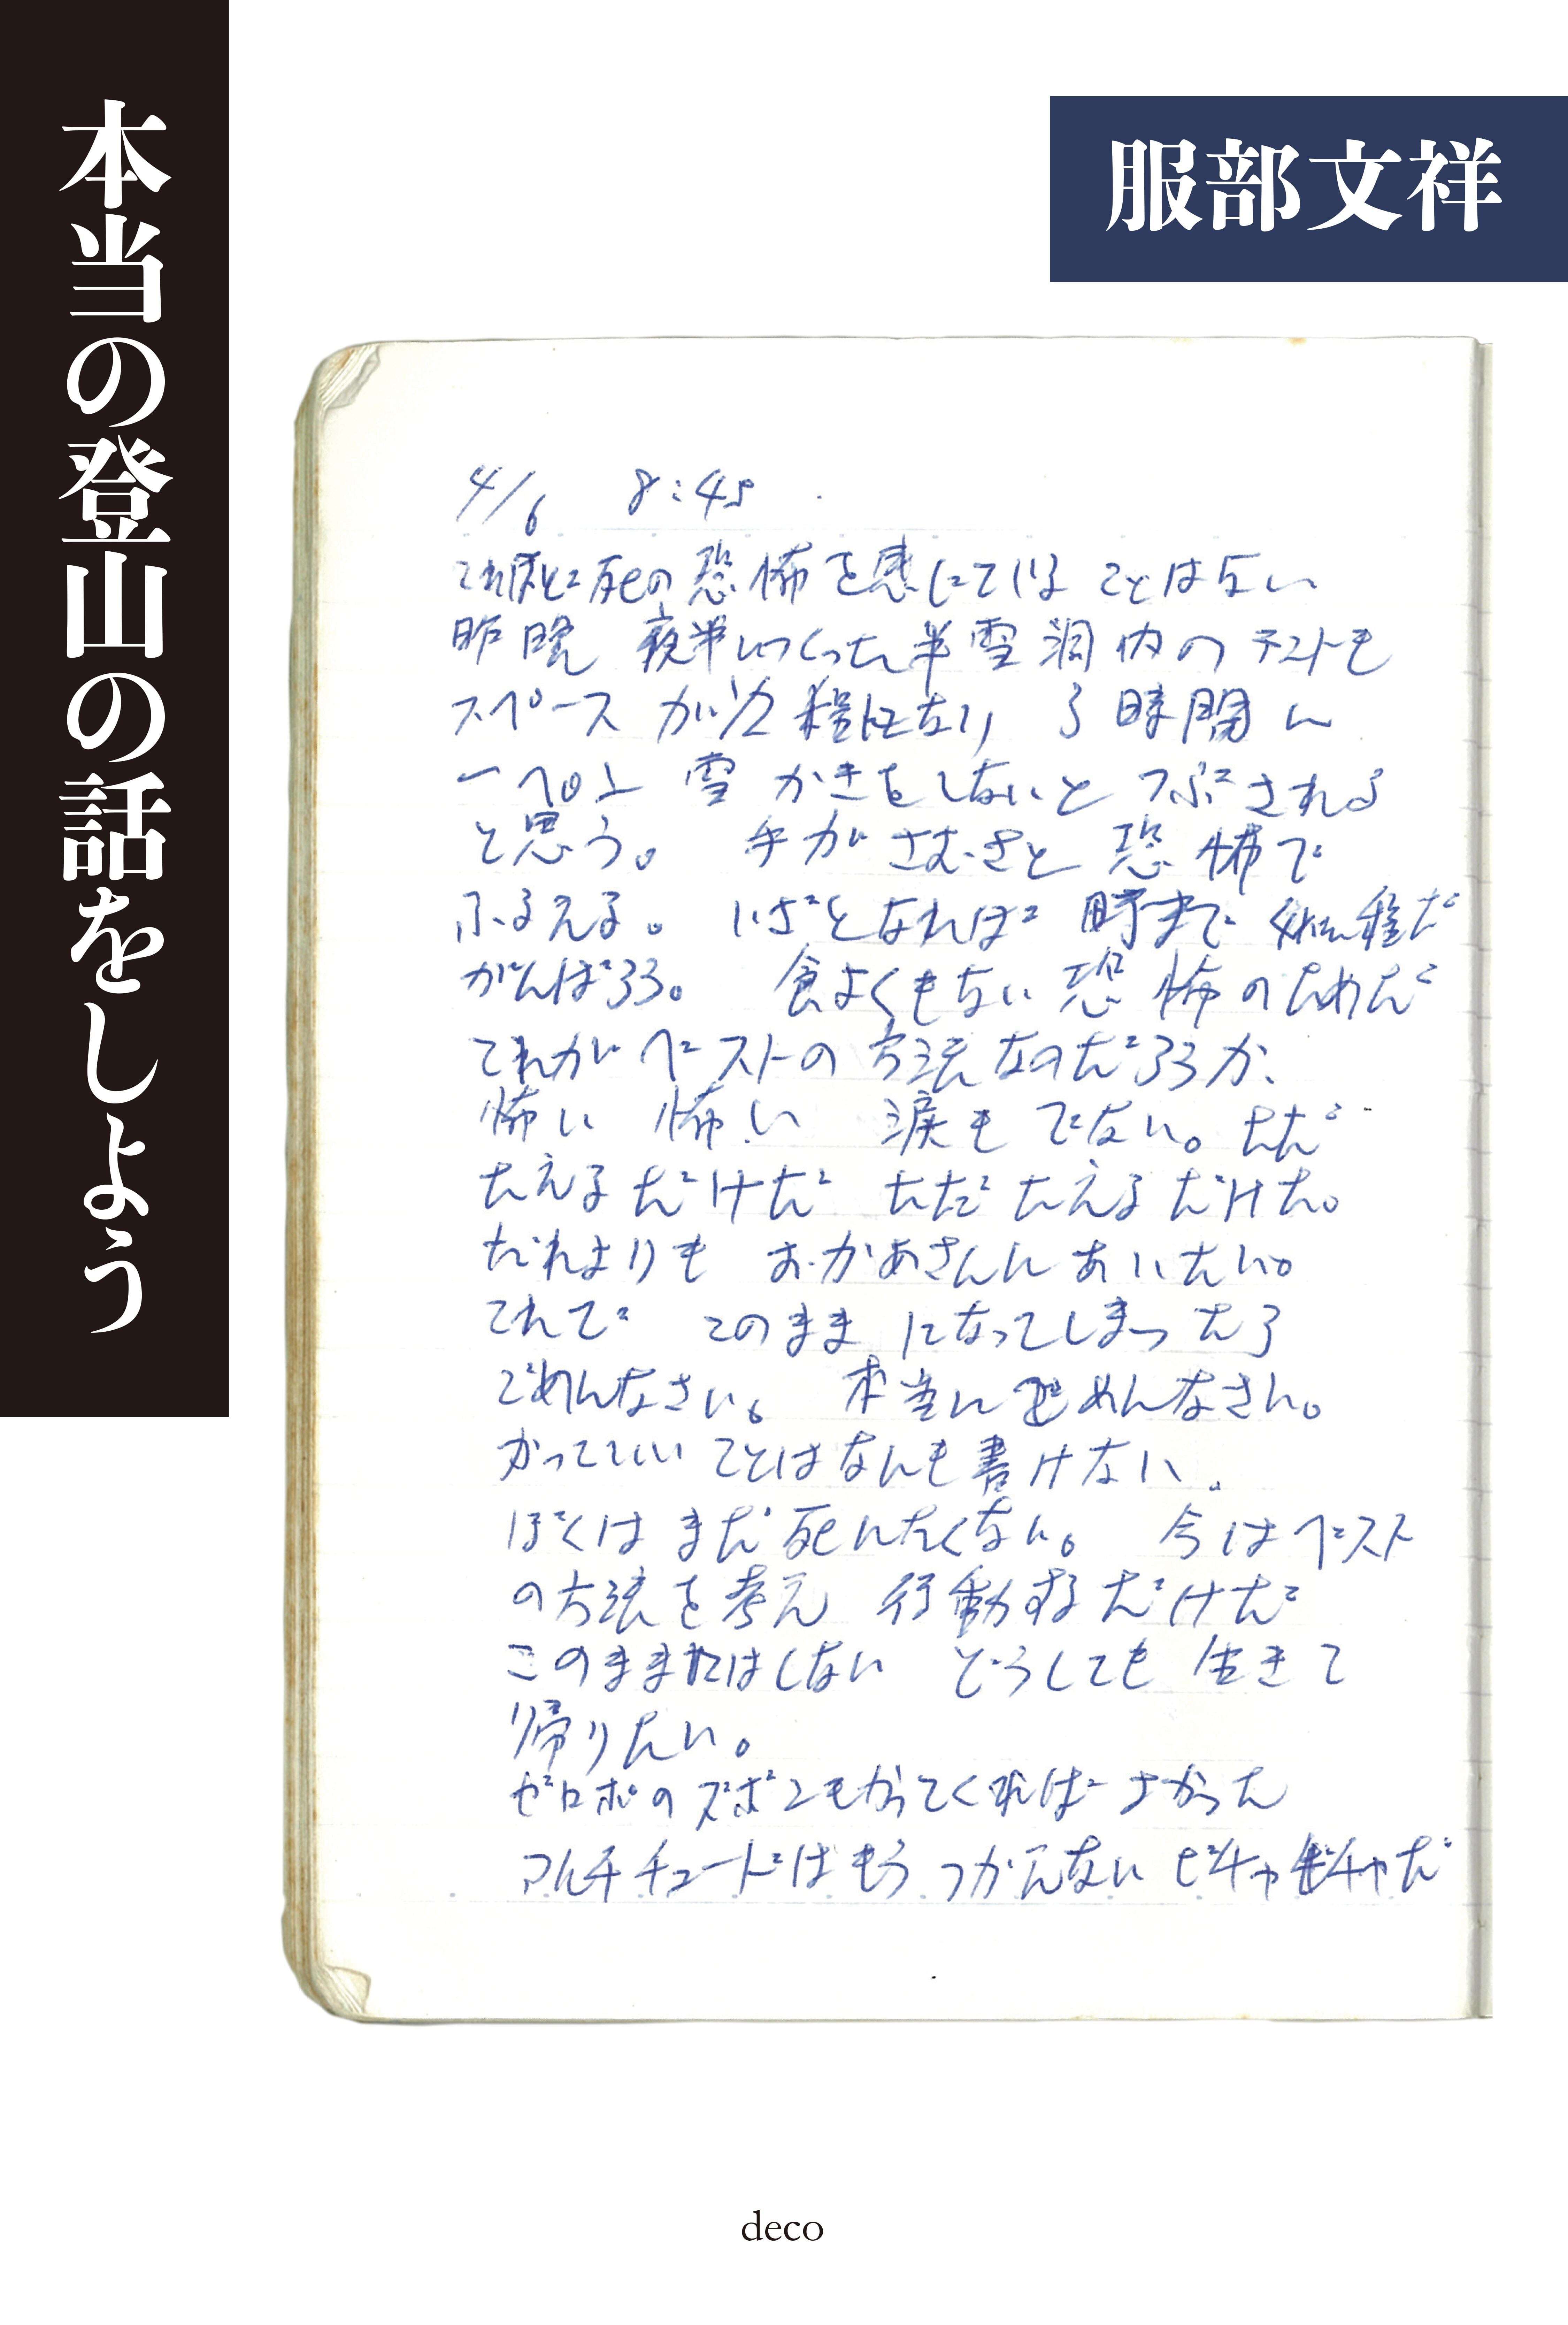 本当の登山の話をしよう
服部文祥
4/6 8:45
これほど死の恐怖を感じていることはない
昨晩 夜半につくった半雪洞内のテントも
スペースが1/2程になり 3時間に
一ぺん 雪かきをしないと つぶされる
と思う。 手がさむさと恐怖で
ふるえる。 いざとなれば 時まで だ
がんばろう。 食よくもない 恐怖のためだ
これがベストの方法なのだろうか、
怖い 怖い 涙もでない。ただ
たえるだけだ ただたえるだけだ。
だれよりも おかあさんにあいたい。
これで このままになってしまったら
ごめんなさい。 本当にごめんなさい。
かっこいいことはなんも書けない。
ぼくはまだ死にたくない。 今はベスト
の方法を考え 行動するだけだ
このままではしない どうしても生きて
帰りたい。
ゼロポのズボンもかってくればよかった
マルチチュードはもうつかえない ビチャビチャだ
deco